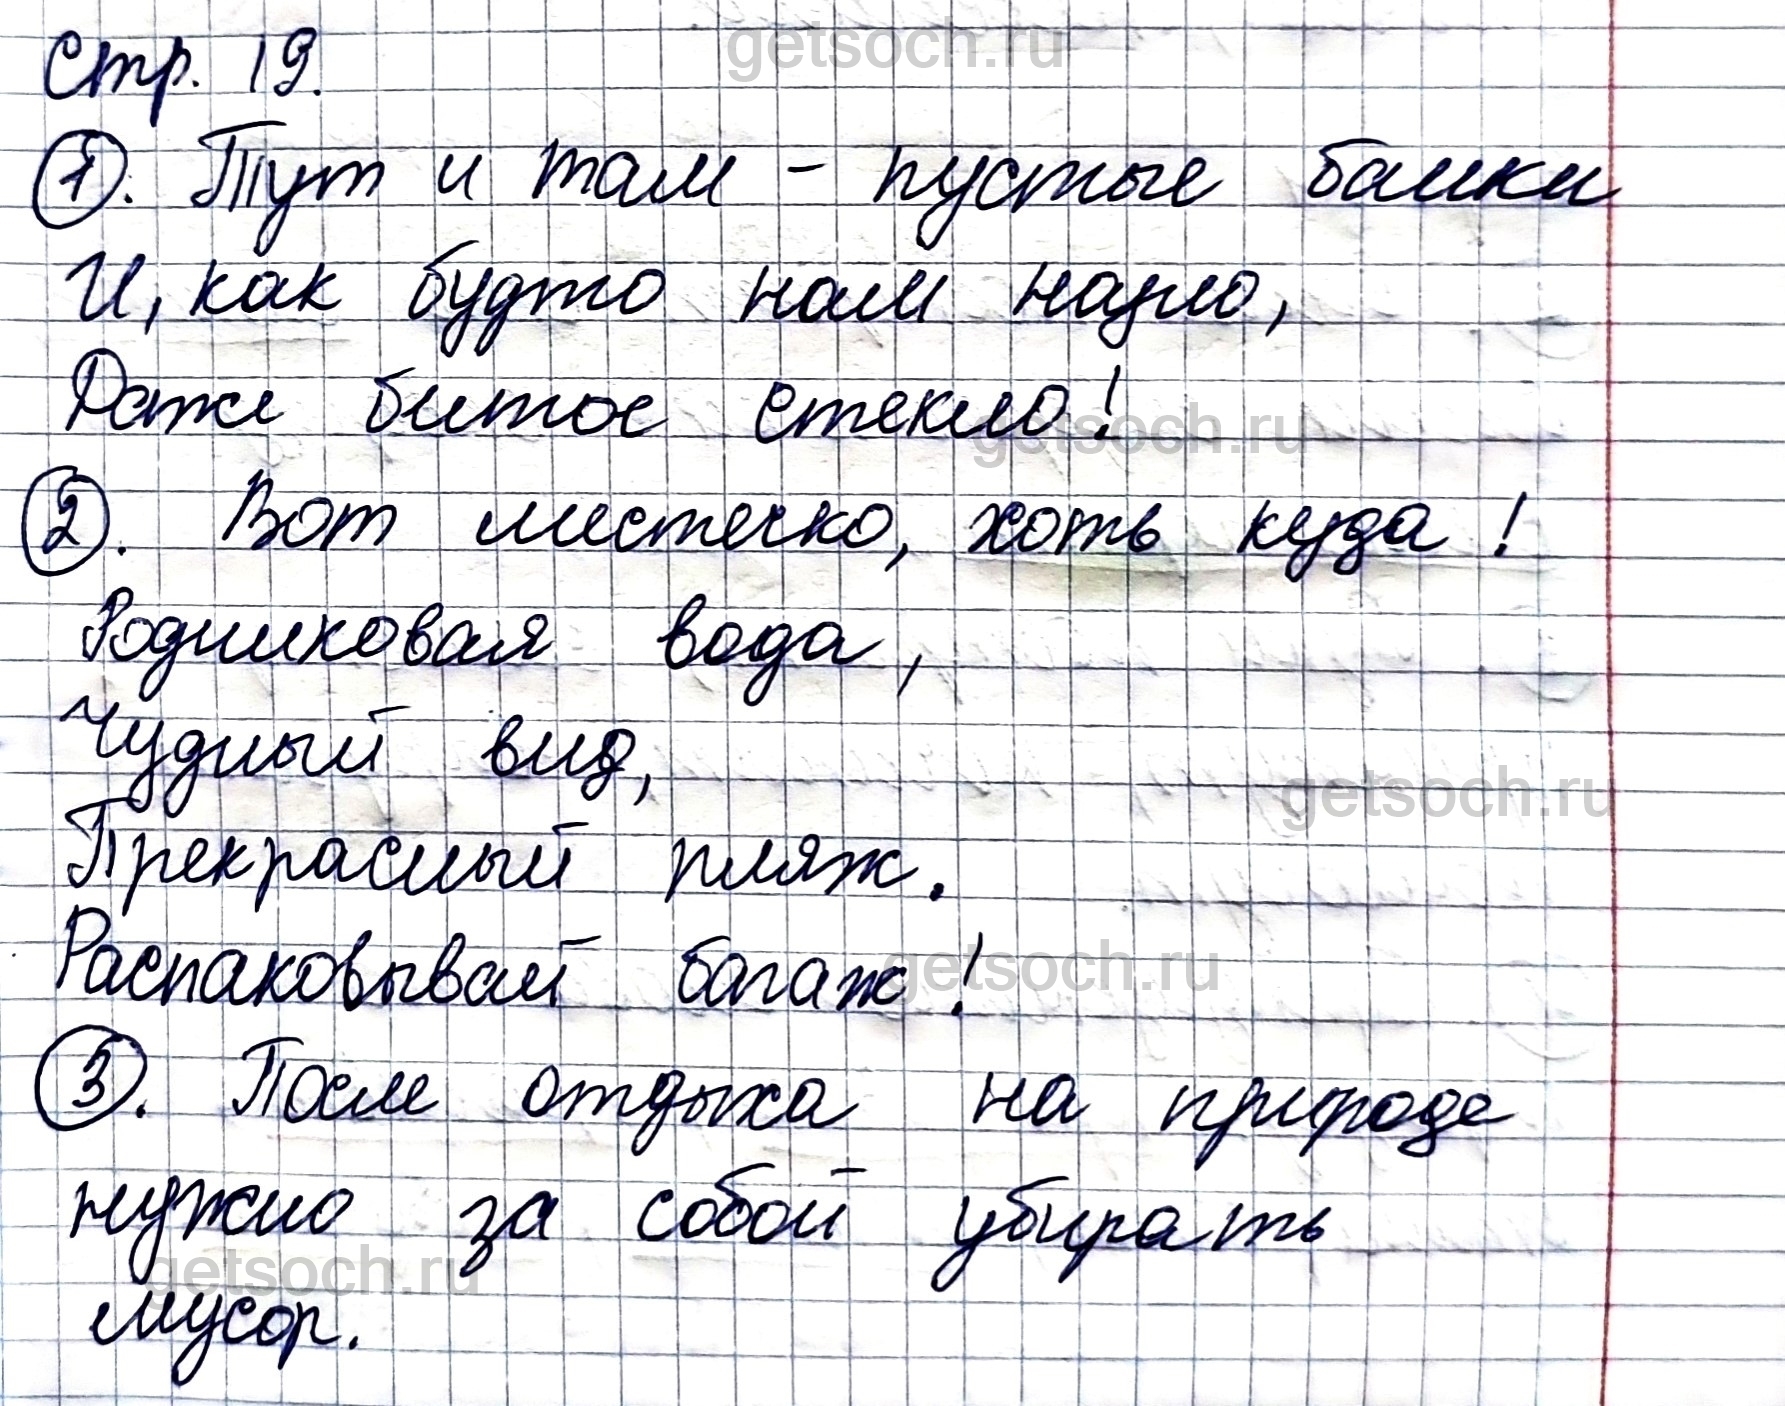 getsoch.ru
Стр. 19.
1. Тут и там – пустые банки
И, как будто нам назло,
Даже битое стекло!
getsoch.ru
2. Вот местечко, хоть куда!
Родниковая вода,
Чудный вид,
getsoch.ru
Прекрасный пляж.
Распаковывай багаж!
getsoch.ru
3. После отдыха на природе
нужно за собой убирать
getsoch.ru
мусор.